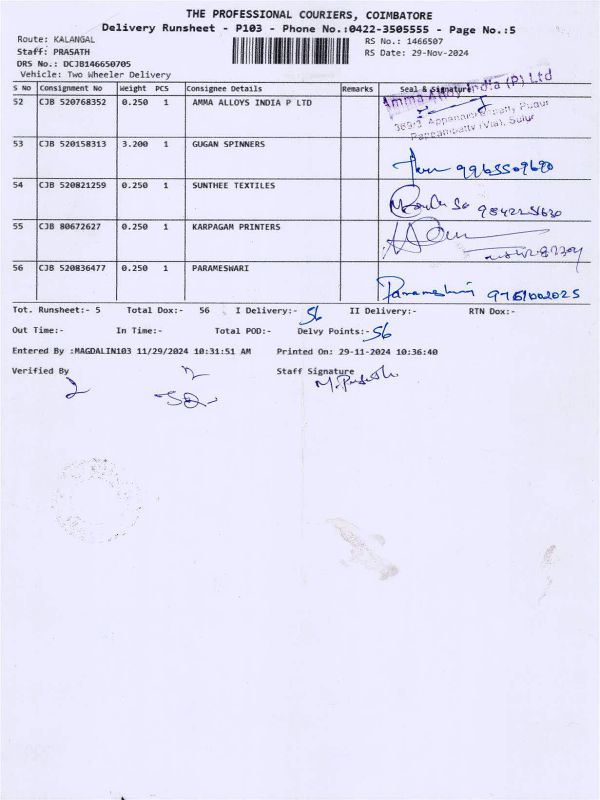 THE PROFESSIONAL COURIERS, COIMBATORE
Delivery Runsheet - P103 - Phone No.:0422-3505555 - Page No.:5
Route: KALANGAL
RS No.: 1466507
Staff: PRASATH
RS Date: 29-Nov-2024
DRS No.: DCJB146650705
Vehicle: Two Wheeler Delivery
S No Consignment No Weight PCS Consignee Details Remarks Seal & Signature
52 CJB 520768352 0.250 1 AMMA ALLOYS INDIA P LTD
Amma Alloy India (P) Ltd
Pappampatty (Via), Sulur
53 CJB 520158313 3.200 1 GUGAN SPINNERS
54 CJB 520821259 0.250 1 SUNTHEE TEXTILES
55 CJB 80672627 0.250 1 KARPAGAM PRINTERS
56 CJB 520836477 0.250 1 PARAMESWARI
Parameshwari
Tot. Runsheet:- 5 Total Dox:- 56 I Delivery:- 56 II Delivery:- RTN Dox:-
Out Time:- In Time:- Total POD:- Delvy Points:- 56
Entered By :MAGDALIN103 11/29/2024 10:31:51 AM Printed On: 29-11-2024 10:36:40
Verified By Staff Signature
M. Prasath